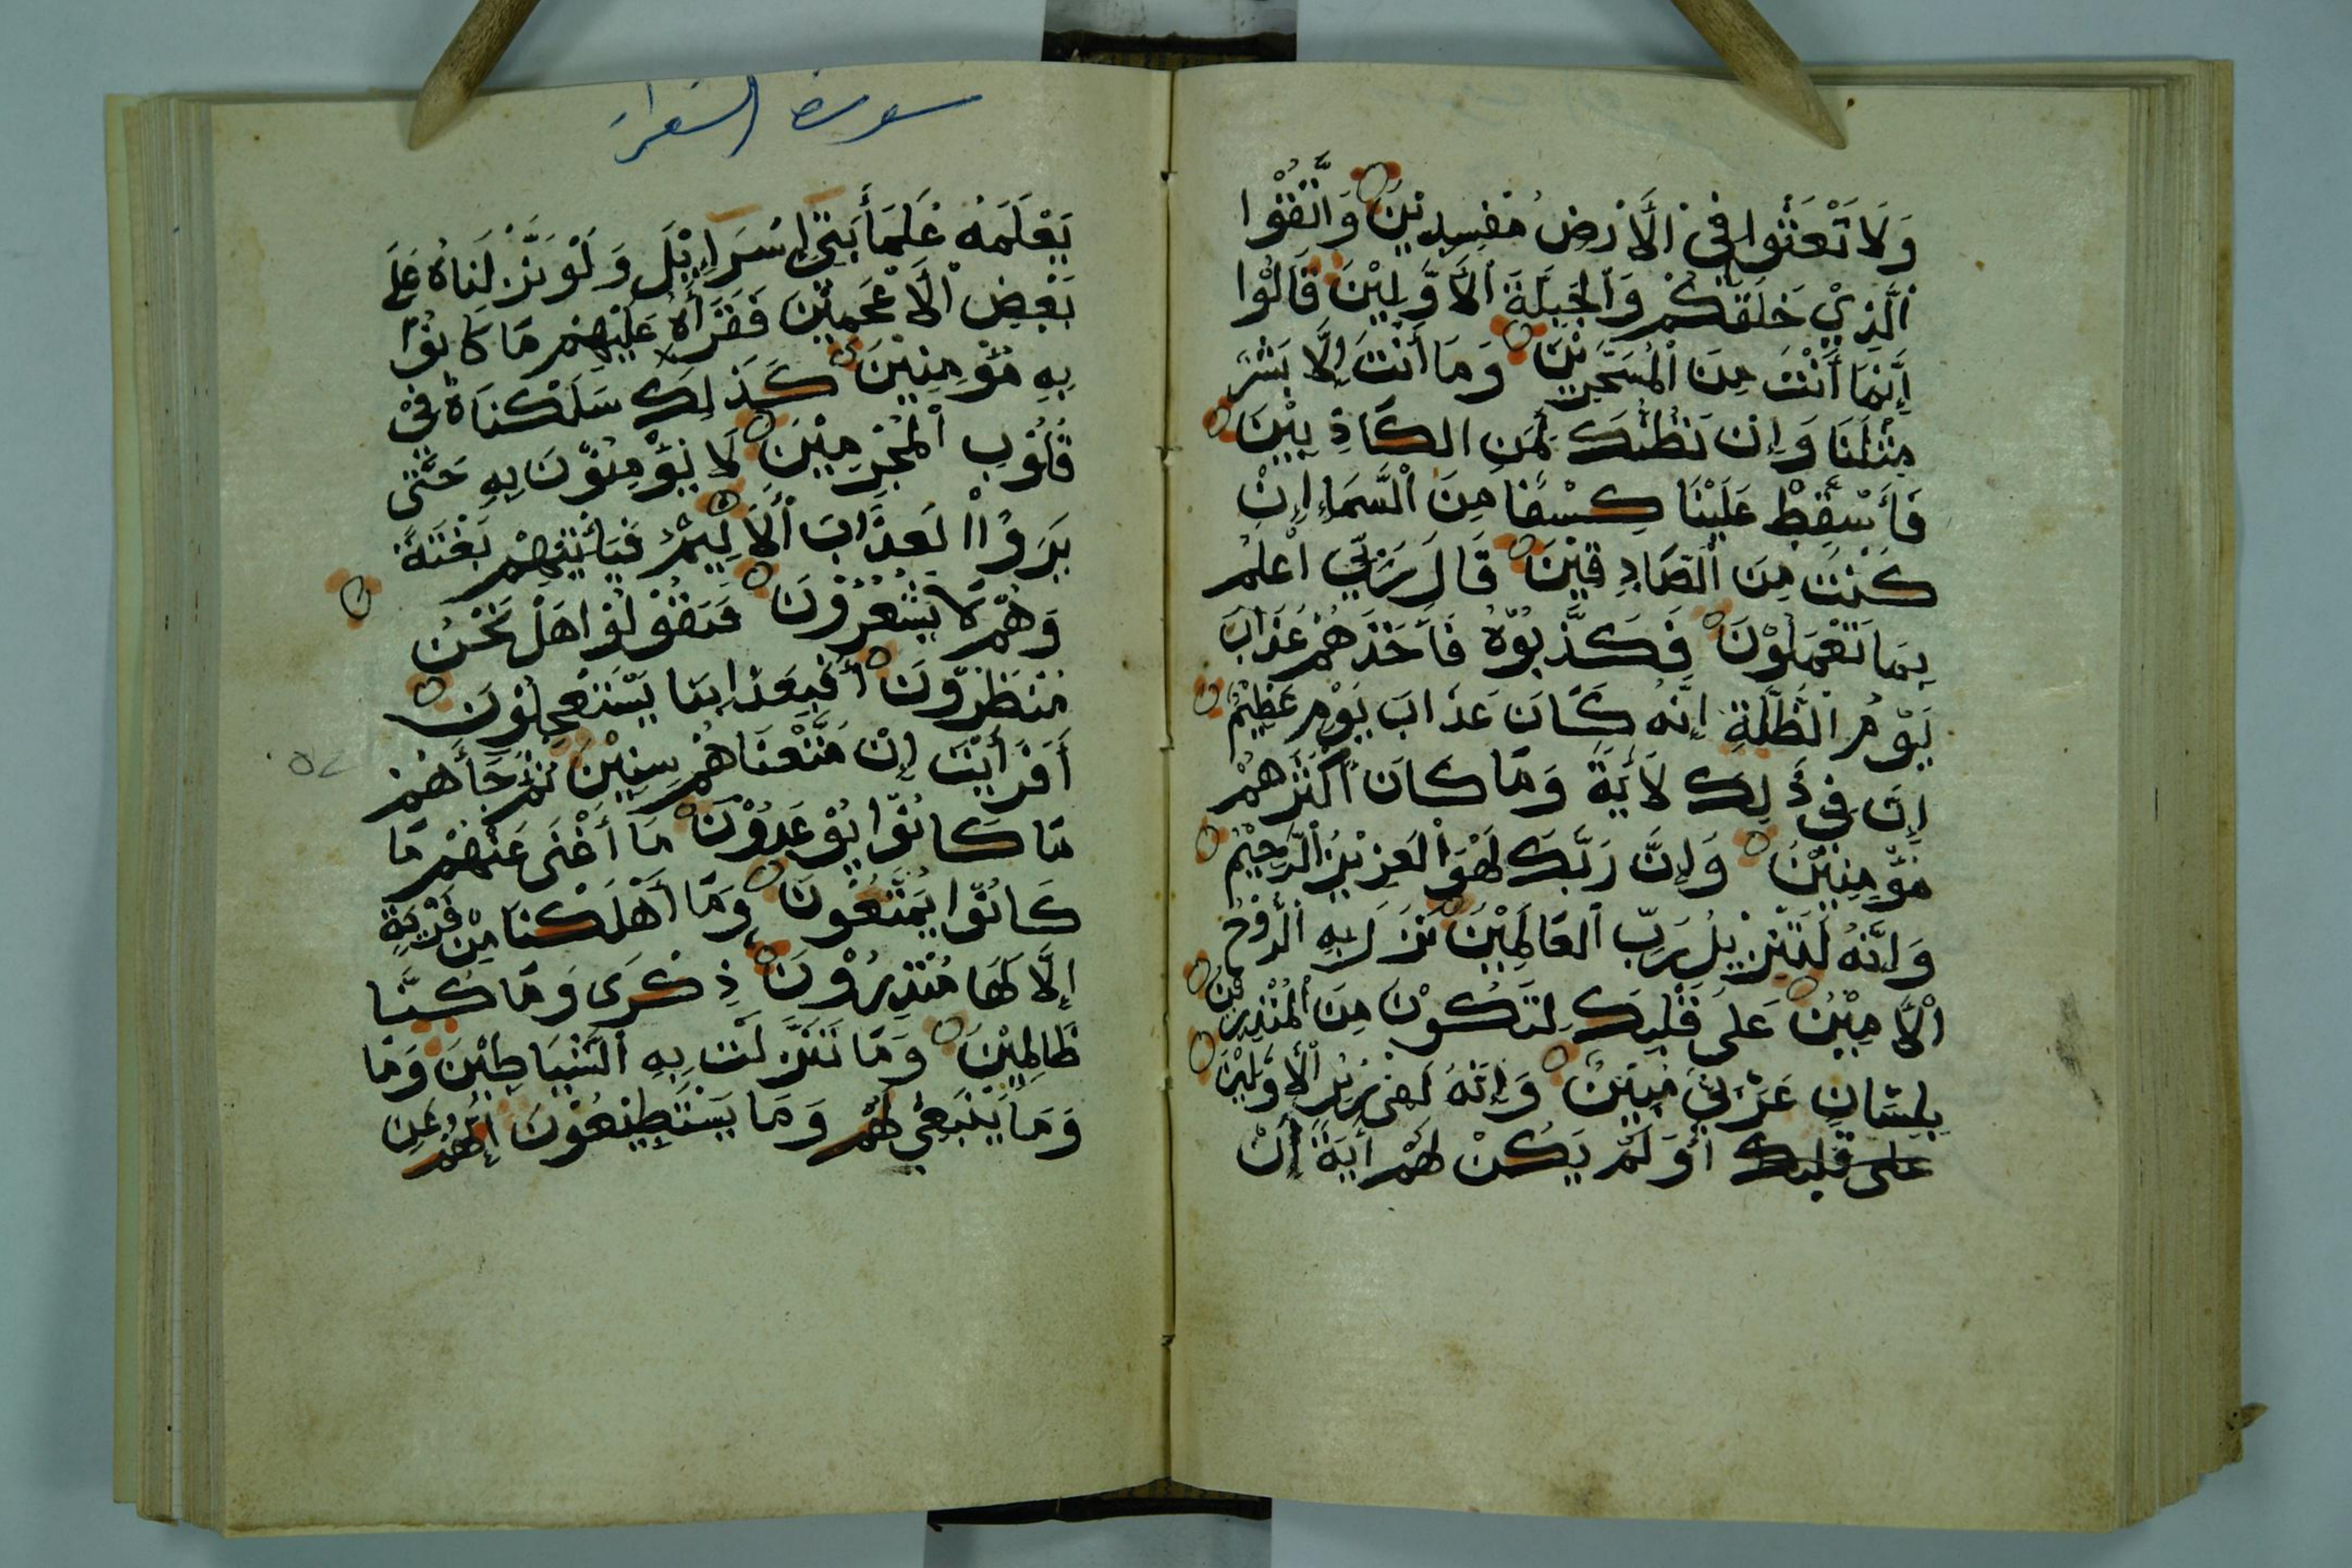 وَلَا تَعْثَوْا فِي الْأَرْضِ مُفْسِدِيْنَ وَاتَّقُوْا
الَّذِيْ خَلَقَكُمْ وَالْجِبِلَّةَ الْأَوَّلِيْنَ قَالُوْا
إِنَّمَا أَنْتَ مِنَ الْمُسَحَّرِيْنَ وَمَا أَنْتَ إِلَّا بَشَرٌ
مِثْلُنَا وَإِنْ نَظُنُّكَ لَمِنَ الكَاذِبِيْنَ
فَأَسْقِطْ عَلَيْنَا كِسَفًا مِنَ السَّمَاءِ إِنْ
كُنْتَ مِنَ الصَّادِقِيْنَ قَالَ رَبِّي أَعْلَمُ
بِمَا تَعْمَلُوْنَ فَكَذَّبُوْهُ فَأَخَذَهُمْ عَذَابَ
يَوْمِ الظُّلَّةِ إِنَّهُ كَانَ عَذَابَ يَوْمٍ عَظِيْمٍ
إِنَّ فِي ذَلِكَ لَأَيَةً وَمَا كَانَ أَكْثَرُهُمْ
مُؤْمِنِيْنَ وَإِنَّ رَبَّكَ لَهُوَ الْعَزِيْزُ الرَّحِيْمُ
وَإِنَّهُ لَتَنْزِيْلُ رَبِّ الْعَالَمِيْنَ نَزَلَ بِهِ الرُّوْحُ
الْأَمِيْنُ عَلَى قَلْبِكَ لِتَكُوْنَ مِنَ الْمُنْذِرِيْنَ
بِلِسَانٍ عَرَبِيٍّ مُبِيْنٍ وَإِنَّهُ لَفِي زُبُرِ الْأَوَّلِيْنَ
على قلبك أَوَلَمْ يَكُنْ لَهُمْ أَيَةً أَنْ
سورة الشعراء
يَعْلَمَهُ عُلَمَأُ بَنِي إِسْرَاءِيْلَ وَلَوْ نَزَّلْنَاهُ عَلَى
بَعْضِ الْأَعْجَمِيْنَ فَقَرَأَهُ عَلَيْهِمْ مَا كَانُوْا
بِهِ مُؤْمِنِيْنَ كَذَلِكَ سَلَكْنَاهُ فِيْ
قُلُوْبِ الْمُجْرِمِيْنَ لَا يُؤْمِنُوْنَ بِهِ حَتَّى
يَرَوُاْ الَعذَابَ الْأَلِيْمَ فَيَأْتِيَهُمْ بَغْتَةً
وَهُمْ لَا يَشْعُرُوْنَ فَيَقُوْلُوْا هَلْ نَحْنُ
مُنْظَرُوْنَ أَفَبِعَذَابِنَا يَسْتَعْجِلُوْنَ
أَفَرَأَيْتَ إِنْ مَتَّعْنَاهُمْ سِنِيْنَ ثُمَّ جَأَهُمْ
مَا كَانُوْا يُوْعَدُوْنَ مَا أَغْنَى عَنْهُمْ مَا
كَانُوْا يُمَتَّعُوْنَ وَمَا أَهْلَكْنَا مِنْ قَرْيَةٍ
إِلَّا لَهَا مُنْذِرُوْنَ ذِكْرَى وَمَا كُنَّا
ظَالِمِيْنَ وَمَا تَنَزَّلَتْ بِهِ الشَّيَاطِيْنُ وَمَا
وَمَا يَنْبَغِيْ لَهُمْ وَمَا يَسْتَطِيْعُوْنَ إِنَّهُمْ عَنِ